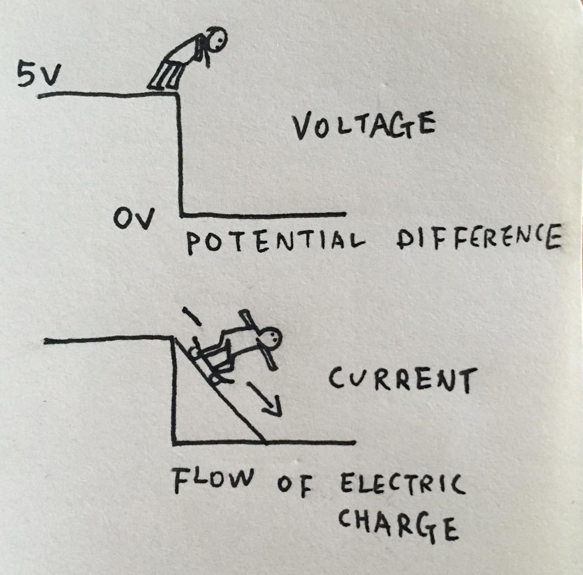 5V
VOLTAGE
0V
POTENTIAL DIFFERENCE
CURRENT
FLOW OF ELECTRIC
CHARGE